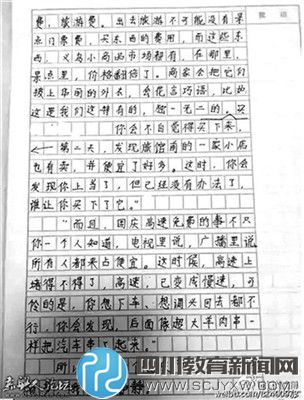 批语
费，旅游费。出去旅游不可能没有景
点门票费，买东西的费用，而这些东
西，义乌小商品市场都有，在那里，
景点里，价格翻倍了。商家会把它们
披上华丽的外衣，会花言巧语，比如
这是我们这特有的，独一无二的，买
你会不自觉得买下来，
第二天，发现旅馆前的一家小店
也有卖，并便宜了好多。这时，你会
发现你上当了，但已经没有办法了，
谁让你买下了它。”
“而且，国庆高速免费的事不只
你一个人知道，电视里说，广播里说
所有人都来占便宜。这时候，高速上
堵得不得了，高速，已变成慢速，可
怜的是，你想下车、想调头回去都不
行，你会发现，后面像超大羊肉串一
样把汽车串了起来。”
所
四川教育新闻网
WWW.SCJYXW.COM